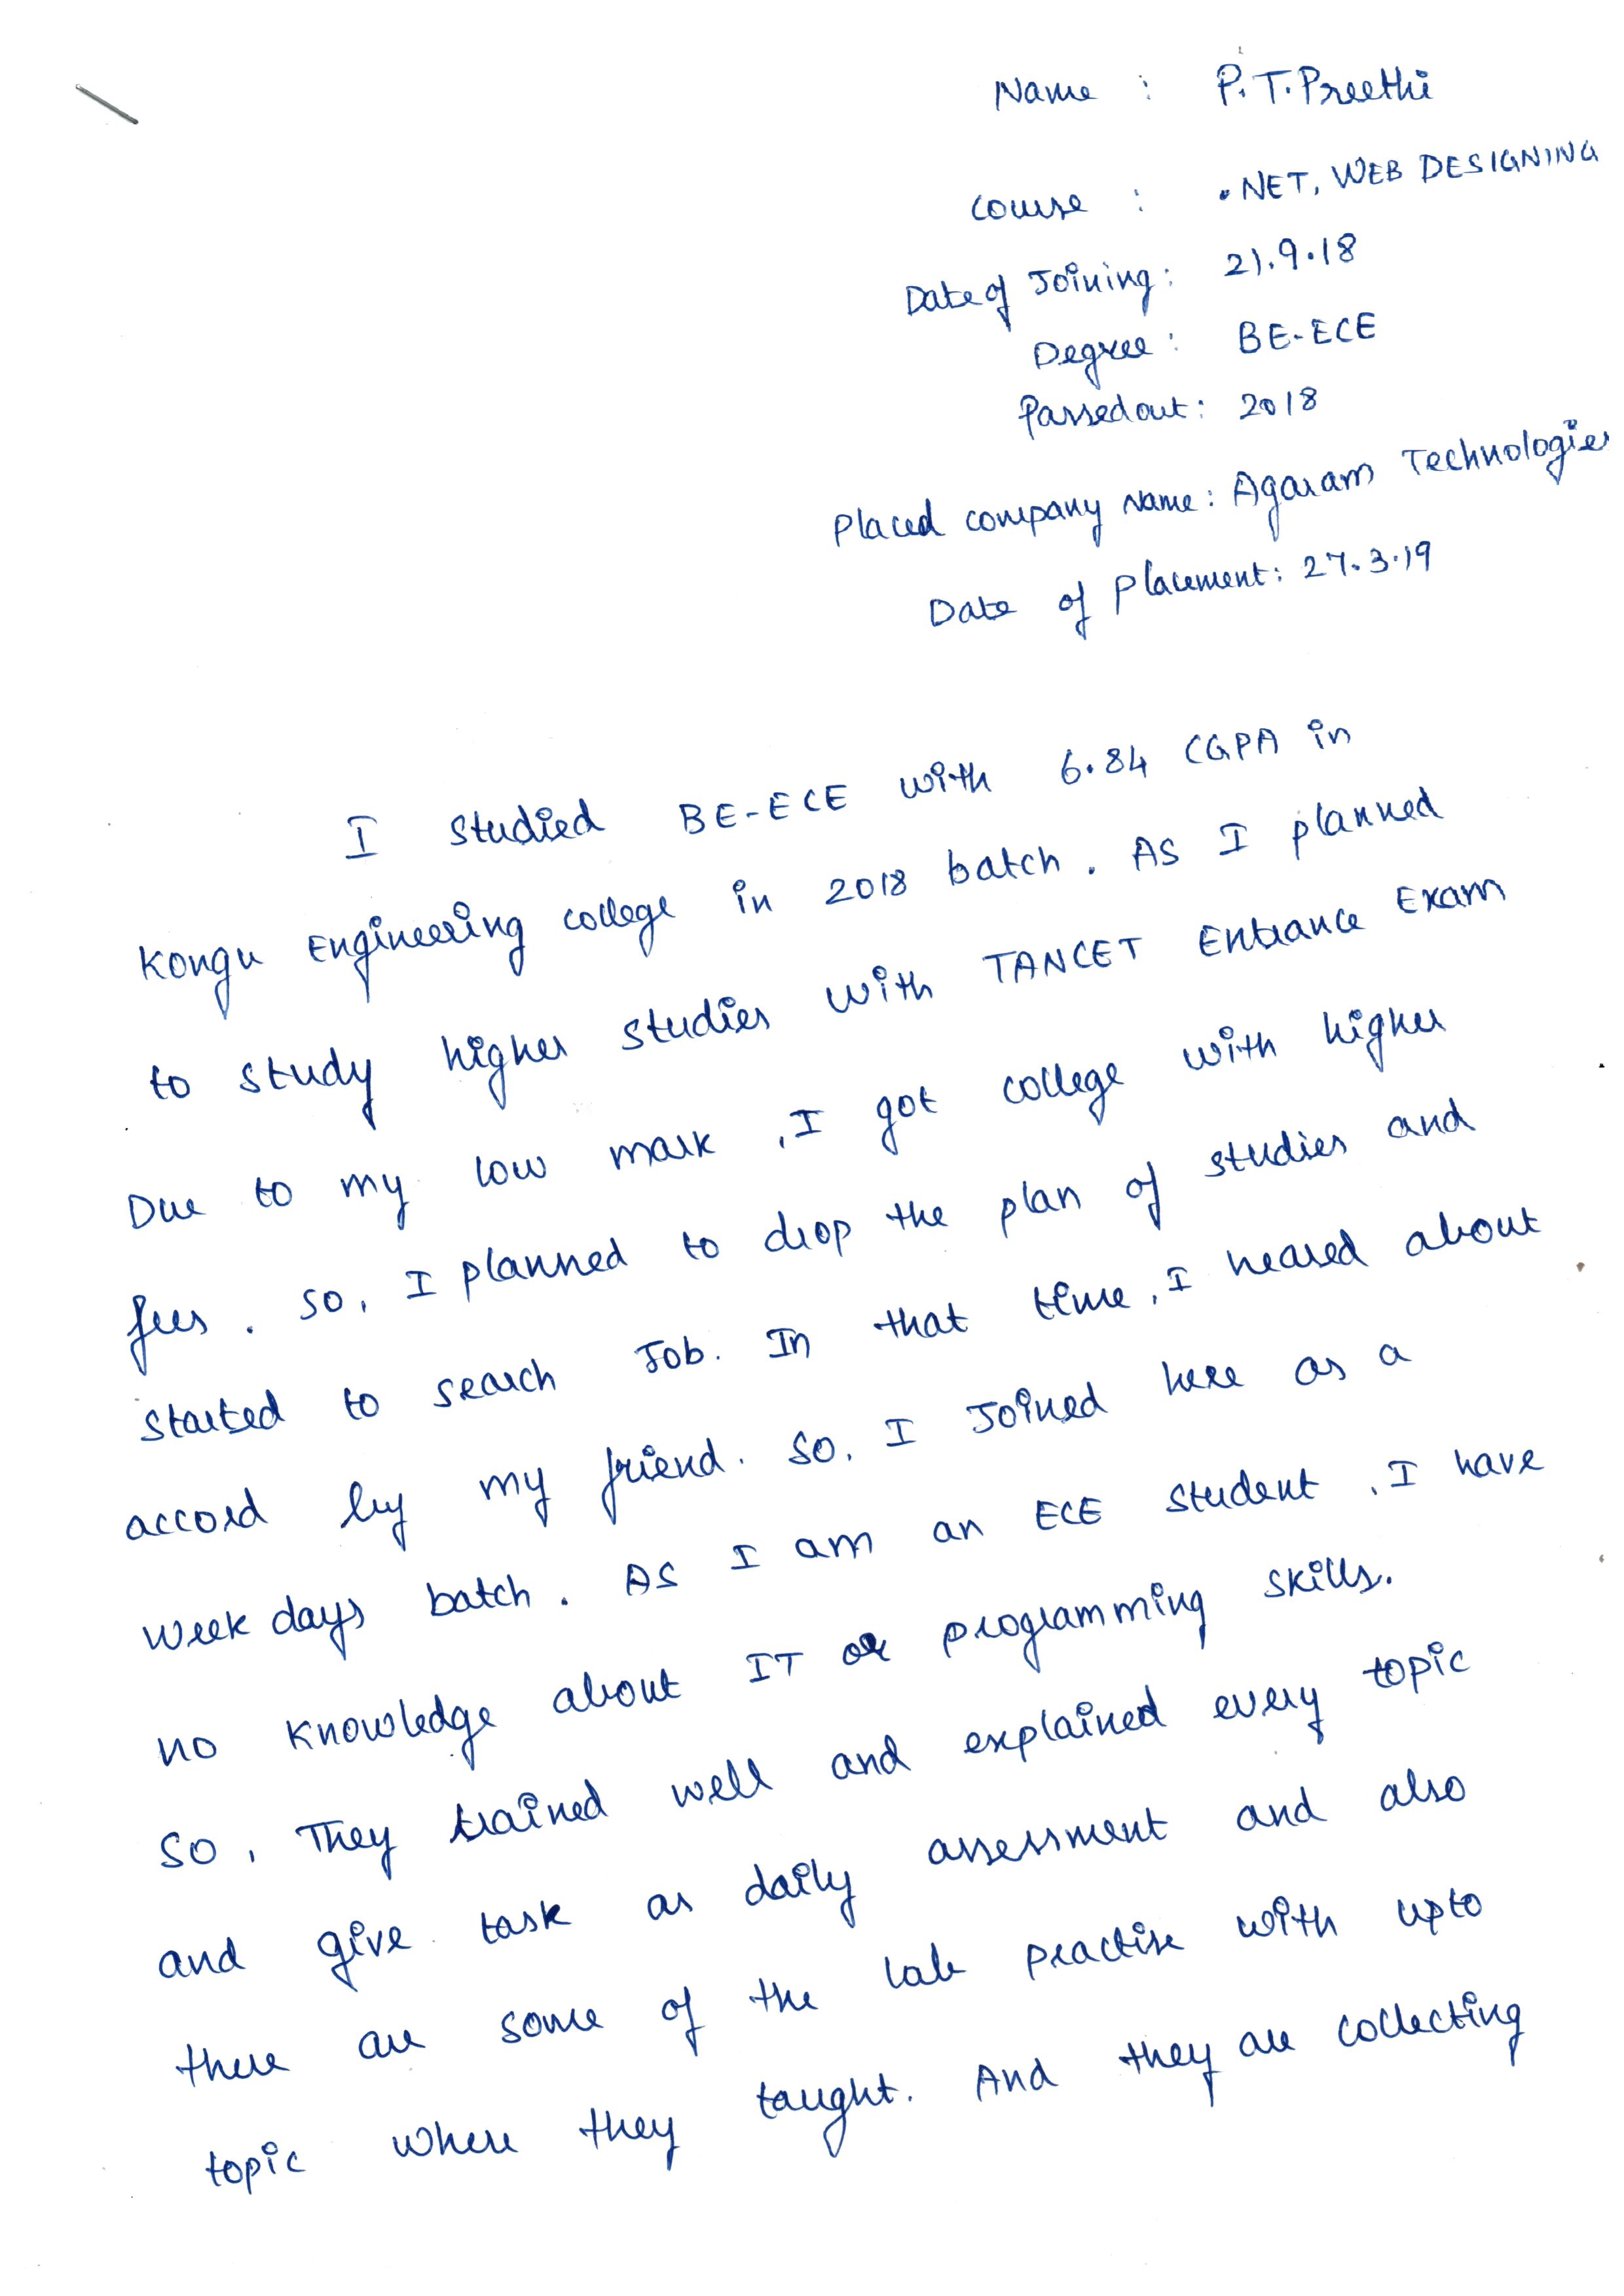 Name : P.T.Preethi
Course : .NET, WEB DESIGNING
Date of Joining : 21.9.18
Degree : BE-ECE
Passedout : 2018
Placed company Name : Agaram Technologies
Date of Placement : 27.3.19
I studied BE-ECE with 6.84 CGPA in
Kongu Engineering college in 2018 batch. As I planned
to study higher studies with TANCET Entrance Exam
Due to my low mark, I got college with higher
fees. So, I planned to drop the plan of studies and
started to search Job. In that time, I heared about
accord by my friend. So, I Joined here as a
week days batch. As I am an ECE student, I have
no knowledge about IT or programming skills.
So, They trained well and explained every topic
and give task as daily assessment and also
there are some of the lab practise with upto
topic where they taught. And they are collecting